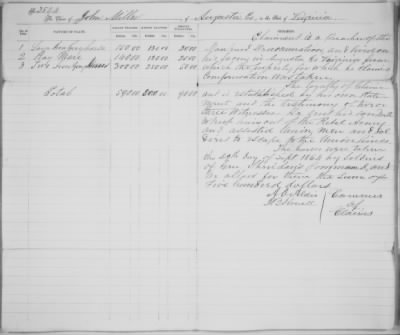 No. 2544
The Claim of John Miller of Augusta Co. in the State of Virginia
NATURE OF CLAIM. AMOUNT CLAIMED. AMOUNT ALLOWED. AMOUNT DISALLOWED. REMARKS.
1 horse 150.00
2 Bay Mare 140.00
3 Two horses 300.00 250.00 50.00
Total 590.00 500.00 90.00
Claimant is a preacher of the
and lived on
his farm in Augusta Co Virginia from
which the property for which he claims
compensation was taken.
The loyalty of Claim-
ant is established by his own state-
ment and the testimony of
three Witnesses. He kept his
out of the Rebel Army
and assisted Union men and
to escape to the Union lines.
The horses were taken
the day of Sept 1864 by Soldiers
of Gen Sheridan's Command, and
we allow for them the sum of
Five hundred dollars.
A. O. Aldis
J. B. Howell
Commrs
of
Claims